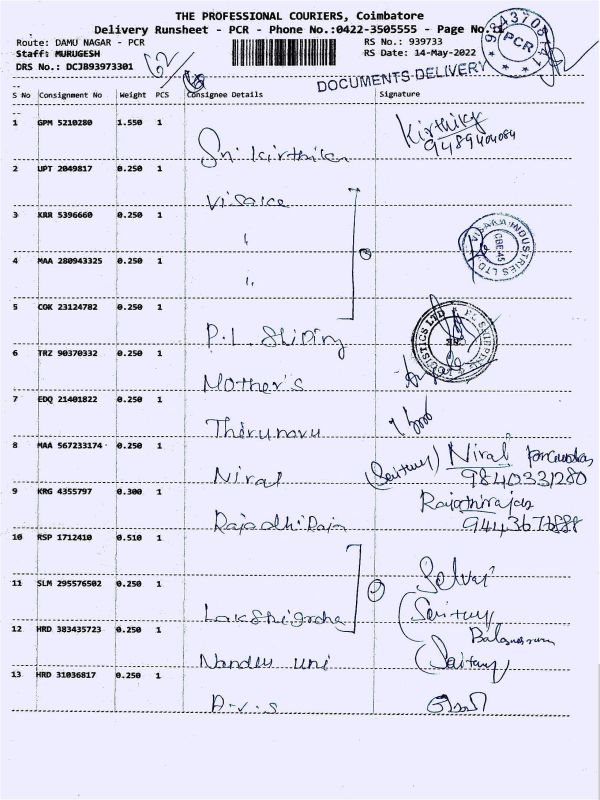 THE PROFESSIONAL COURIERS, Coimbatore
Delivery Runsheet - PCR - Phone No.:0422-3505555 - Page No.:
Route: DAMU NAGAR - PCR
RS No.: 939733
Staff: MURUGESH
RS Date: 14-May-2022
DRS No.: DCJB93973301
62/
DOCUMENTS DELIVERY
PCR
S No Consignment No Weight PCS Consignee Details Signature
1 GPM 5210280 1.550 1 Sri Kirthika Kirthika
9489404084
2 UPT 2049817 0.250 1 Visaka
3 KRR 5396660 0.250 1 "
VISAKA INDUSTRIES LTD
CBE-45
4 MAA 280943325 0.250 1 "
5 COK 23124782 0.250 1 P.L. Shiping
6 TRZ 90370332 0.250 1 Mother's
7 EDQ 21401822 0.250 1 Thirunavu
8 MAA 567233174 0.250 1 Niral Niral
9840331280
9 KRG 4355797 0.300 1 Rajadhi Raja Rajathiraja
10 RSP 1712410 0.510 1
11 SLM 295576502 0.250 1 Selvaj
12 HRD 383435723 0.250 1 Nandu uni
13 HRD 31036817 0.250 1 A.V.S